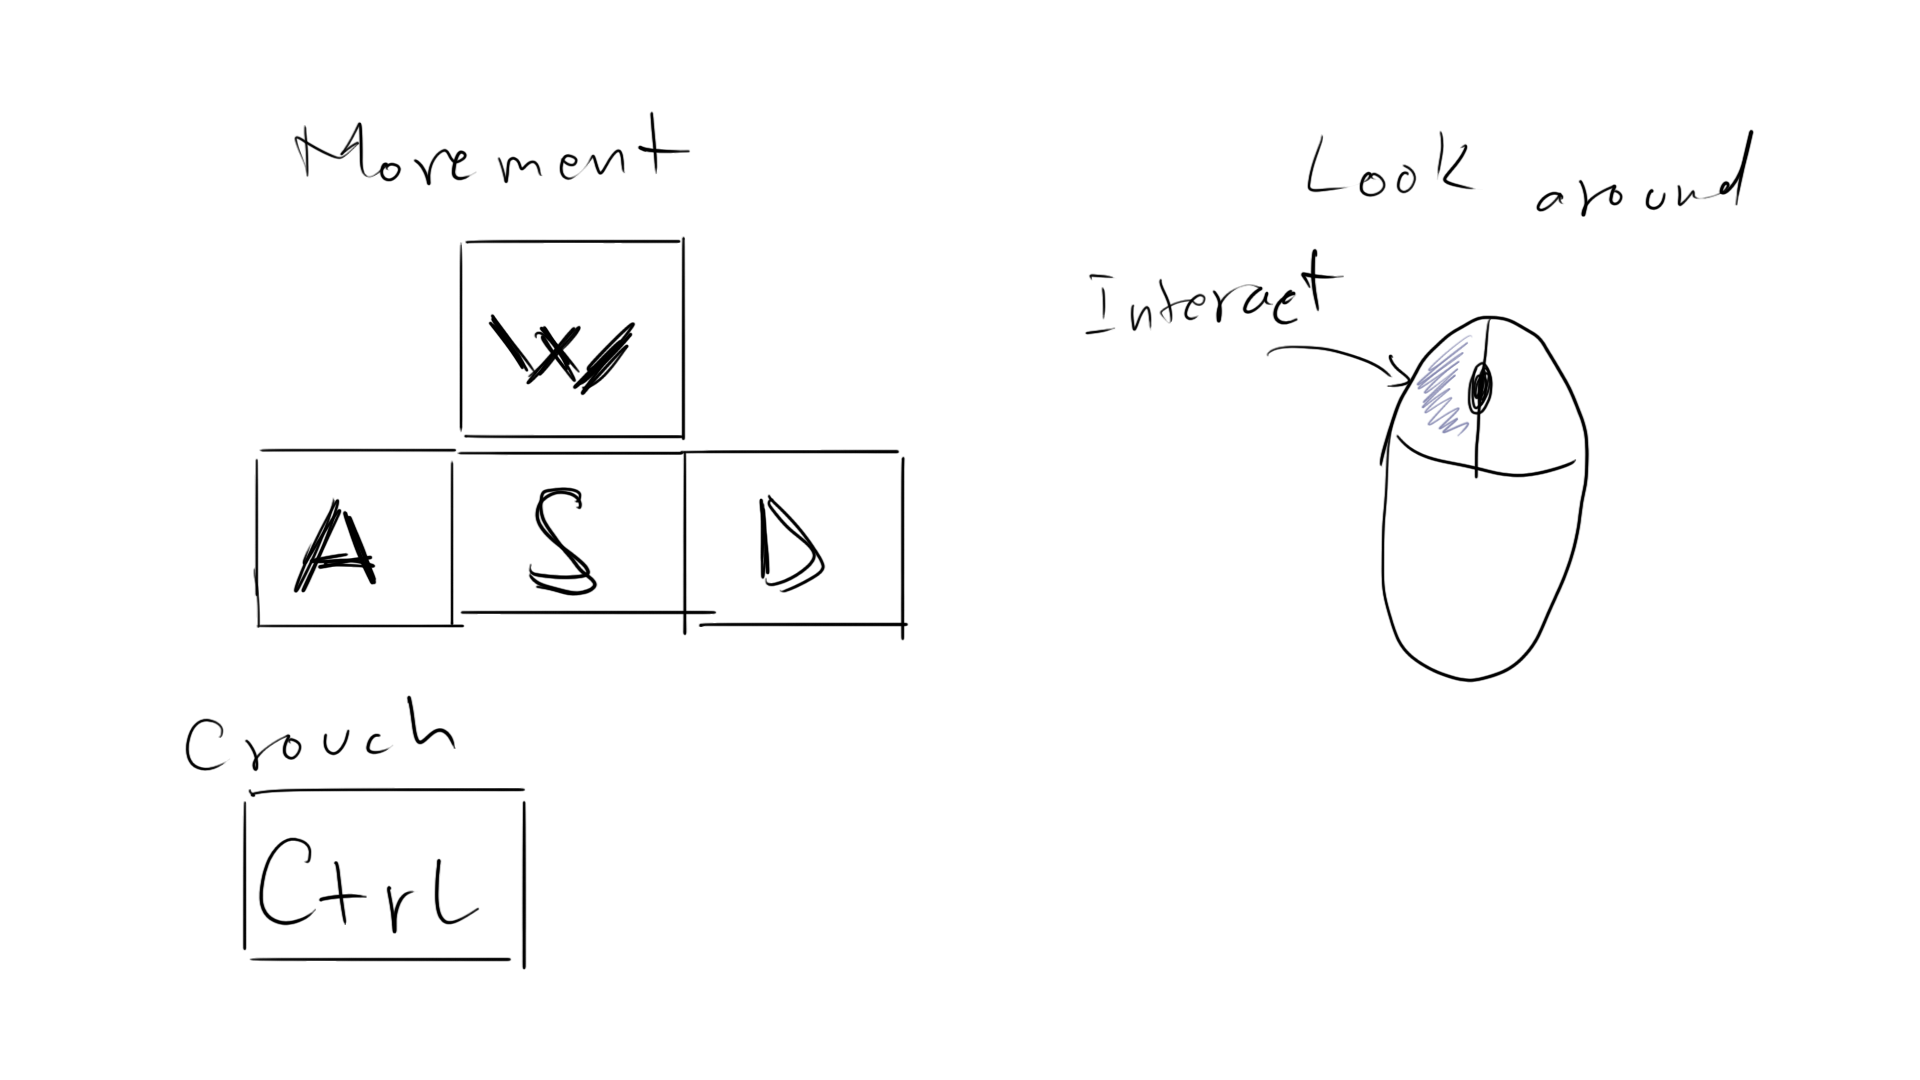 Movement
W
A S D
Crouch
Ctrl
Look around
Interact